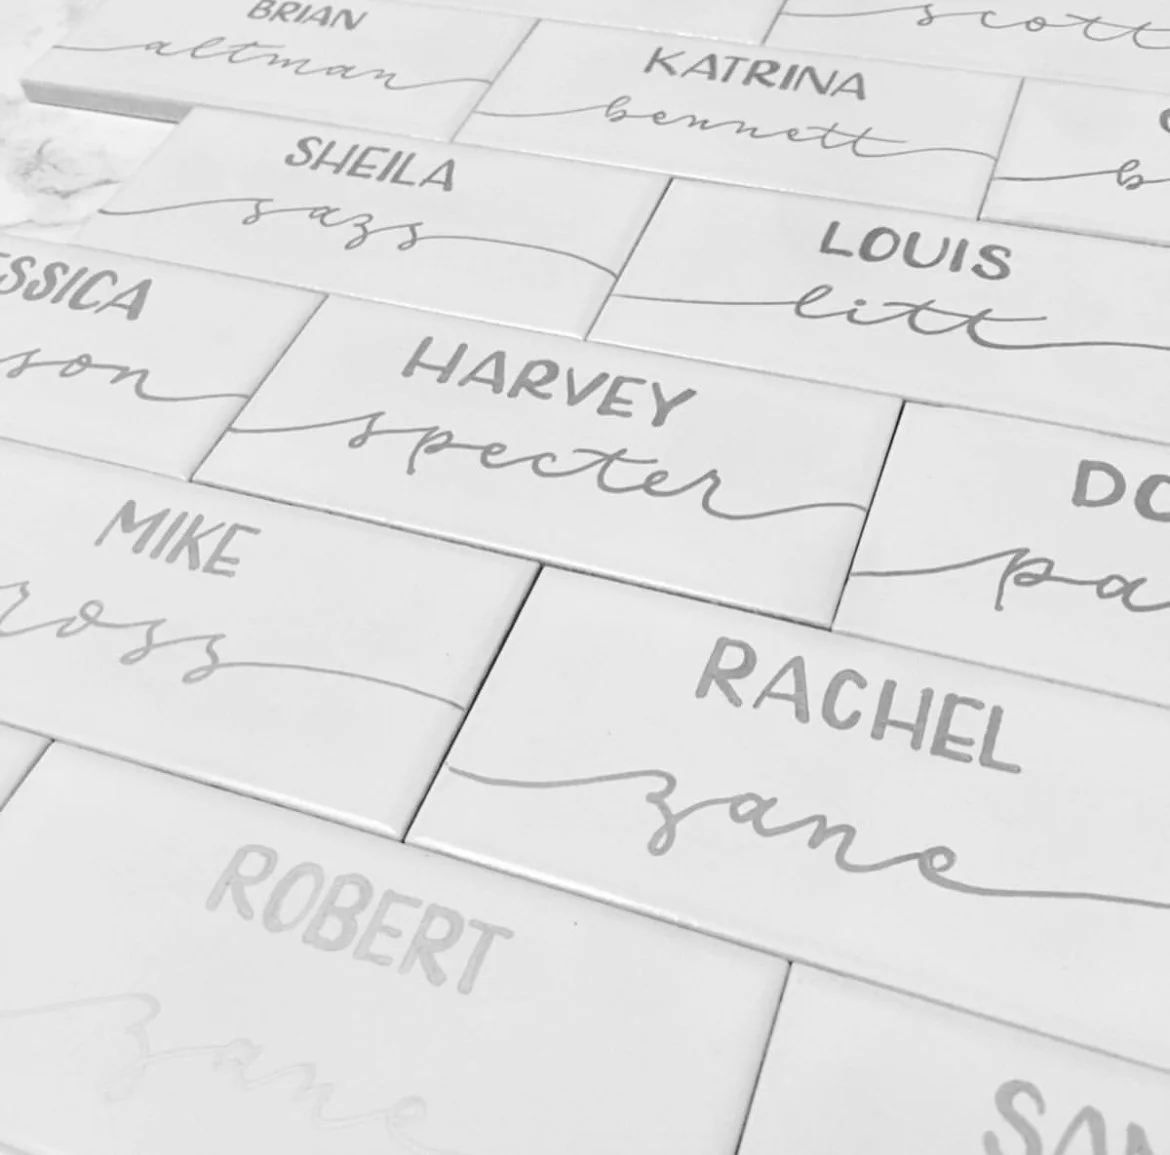 BRIAN
altman
scott
KATRINA
bennett
b
SHEILA
sazs
LOUIS
litt
ESSICA
son
HARVEY
specter
DO
pa
MIKE
ross
RACHEL
zane
ROBERT
zane
SAN